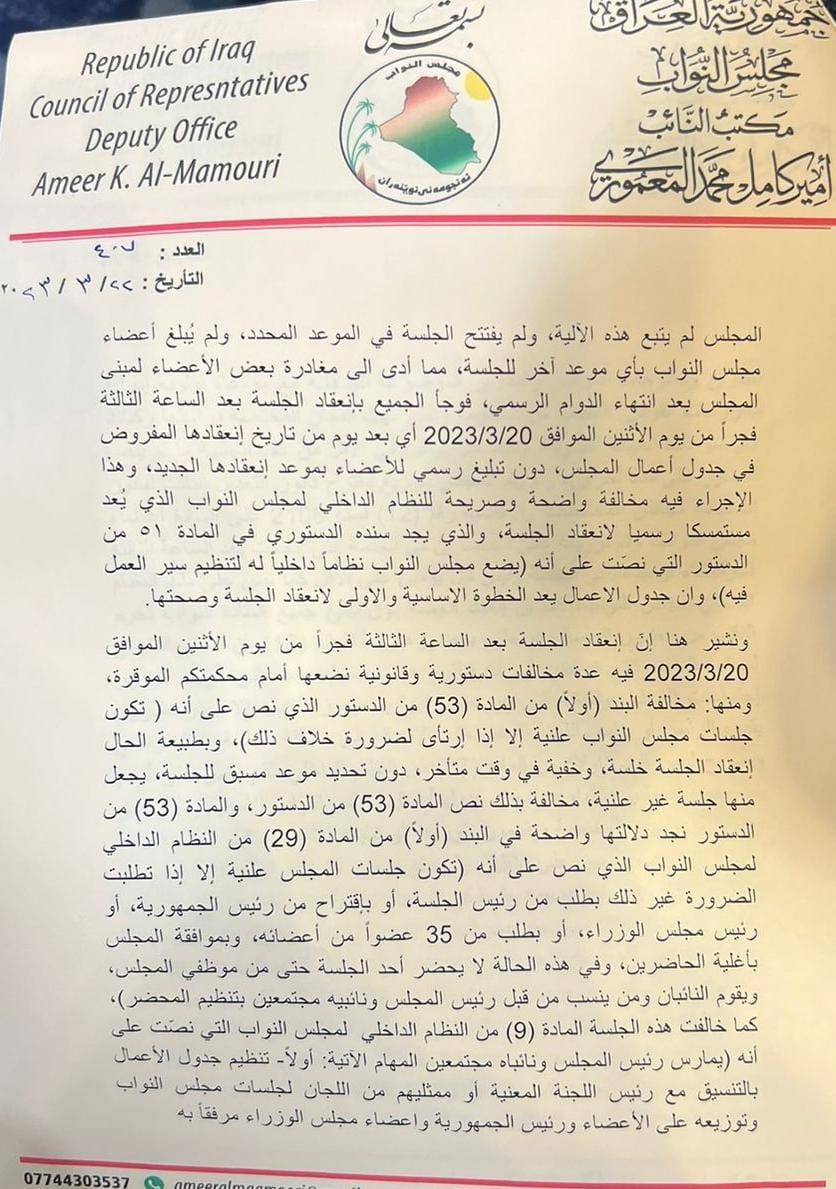 بسمه تعالى
Republic of Iraq
Council of Represntatives
Deputy Office
Ameer K. Al-Mamouri
مجلس النواب
ئه نجومه نی نوێنه ران
جمهورية العراق
مجلس النواب
مكتب النائب
أمير كامل محمد المعموري
العدد : ٤٠٧
التأريخ : ٢٢ / ٣ / ٢٠٢٣
المجلس لم يتبع هذه الآلية، ولم يفتتح الجلسة في الموعد المحدد، ولم يُبلغ أعضاء
مجلس النواب بأي موعد آخر للجلسة، مما أدى الى مغادرة بعض الأعضاء لمبنى
المجلس بعد انتهاء الدوام الرسمي، فوجأ الجميع بإنعقاد الجلسة بعد الساعة الثالثة
فجراً من يوم الأثنين الموافق 2023/3/20 أي بعد يوم من تاريخ إنعقادها المفروض
في جدول أعمال المجلس، دون تبليغ رسمي للأعضاء بموعد إنعقادها الجديد، وهذا
الإجراء فيه مخالفة واضحة وصريحة للنظام الداخلي لمجلس النواب الذي يُعد
مستمسكا رسميا لانعقاد الجلسة، والذي يجد سنده الدستوري في المادة ٥١ من
الدستور التي نصّت على أنه (يضع مجلس النواب نظاماً داخلياً له لتنظيم سير العمل
فيه)، وان جدول الاعمال يعد الخطوة الاساسية والاولى لانعقاد الجلسة وصحتها.
ونشير هنا إنّ إنعقاد الجلسة بعد الساعة الثالثة فجراً من يوم الأثنين الموافق
2023/3/20 فيه عدة مخالفات دستورية وقانونية نضعها أمام محكمتكم الموقرة،
ومنها: مخالفة البند (أولاً) من المادة (53) من الدستور الذي نص على أنه ( تكون
جلسات مجلس النواب علنية إلا إذا إرتأى لضرورة خلاف ذلك)، وبطبيعة الحال
إنعقاد الجلسة خلسة، وخفية في وقت متأخر، دون تحديد موعد مسبق للجلسة، يجعل
منها جلسة غير علنية، مخالفة بذلك نص المادة (53) من الدستور، والمادة (53) من
الدستور نجد دلالتها واضحة في البند (أولاً) من المادة (29) من النظام الداخلي
لمجلس النواب الذي نص على أنه (تكون جلسات المجلس علنية إلا إذا تطلبت
الضرورة غير ذلك بطلب من رئيس الجلسة، أو بإقتراح من رئيس الجمهورية، أو
رئيس مجلس الوزراء، أو بطلب من 35 عضواً من أعضائه، وبموافقة المجلس
بأغلية الحاضرين، وفي هذه الحالة لا يحضر أحد الجلسة حتى من موظفي المجلس،
ويقوم النائبان ومن ينسب من قبل رئيس المجلس ونائبيه مجتمعين بتنظيم المحضر)،
كما خالفت هذه الجلسة المادة (9) من النظام الداخلي لمجلس النواب التي نصّت على
أنه (يمارس رئيس المجلس ونائباه مجتمعين المهام الآتية: أولاً- تنظيم جدول الأعمال
بالتنسيق مع رئيس اللجنة المعنية أو ممثليهم من اللجان لجلسات مجلس النواب
وتوزيعه على الأعضاء ورئيس الجمهورية واعضاء مجلس الوزراء مرفقاً به
07744303537